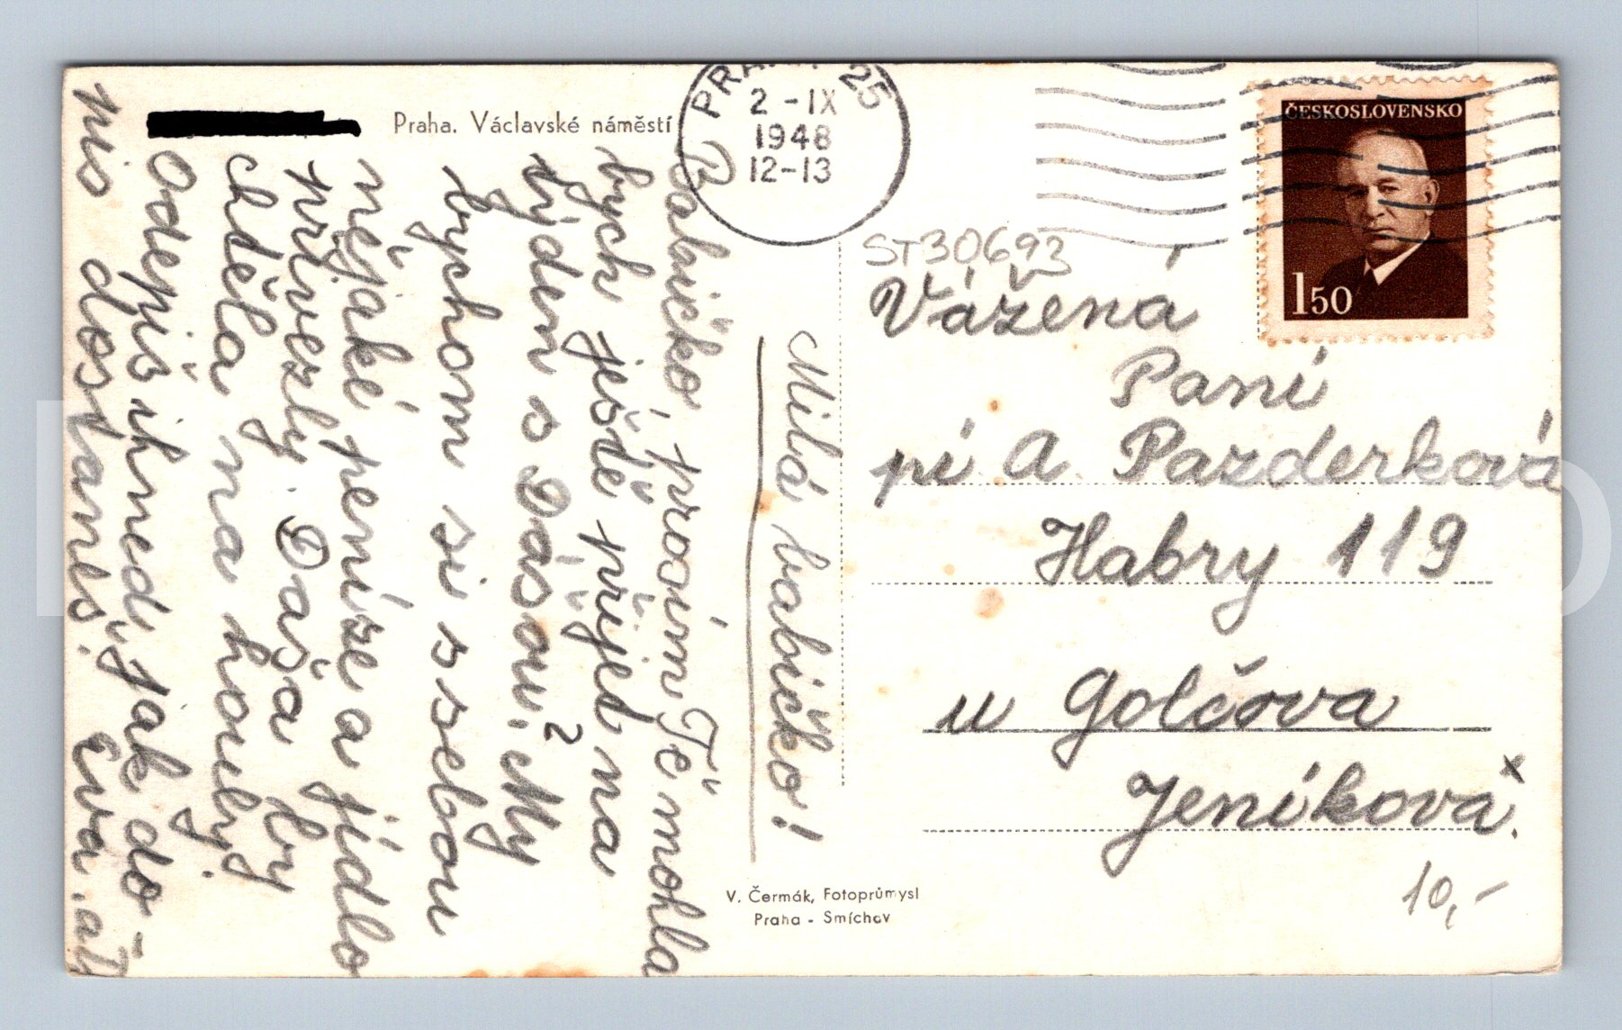 Praha. Václavské náměstí
PRAHA 25
2 - IX
1948
12-13
ČESKOSLOVENSKO
150
ST30693
Vážená
Paní
pí A. Pazderková
Habry 119
u Golčova
Jeníková.
10,-
V. Čermák, Fotoprůmysl
Praha - Smíchov
Milá babičko!
Babičko, prosím Tě mohla
bych ještě přijet na
týden s Dášou? My
bychom si s sebou
nějaké peníze a jídlo
přivezly. Dáša by
chtěla na houby.
Odepiš ihned, jak do-
pis dostaneš. Eva.